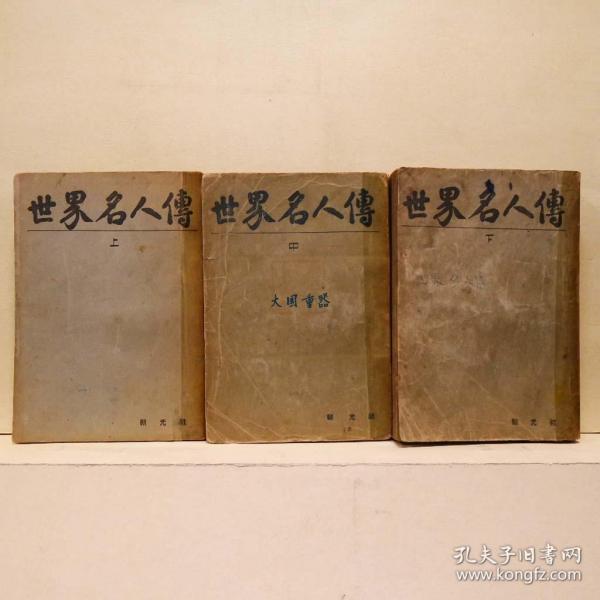 世界名人傳
上
朝光社
世界名人傳
中
大國重器
朝光社
世界名人傳
下
朝光社
孔夫子旧书网
www.kongfz.com